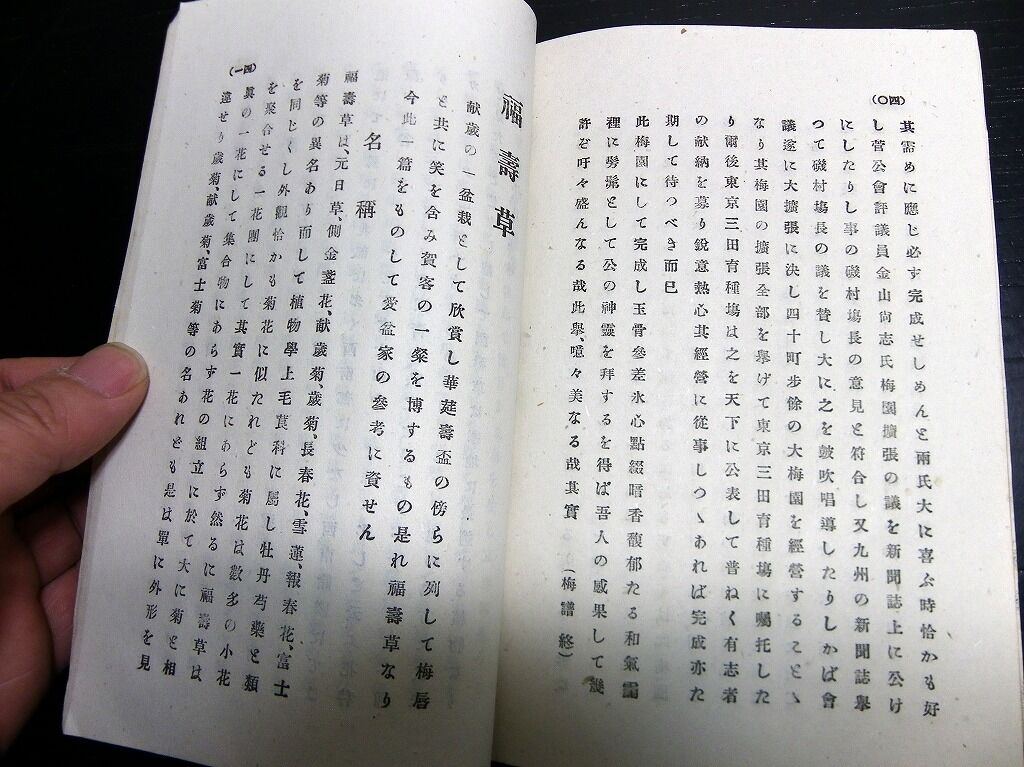 (四〇)
其需めに應じ必ず完成せしめんと兩氏大に喜ぶ時恰かも好
し菅公會評議員金山尚志氏梅園擴張の議を新聞誌上に公け
にしたりし事の磯村塲長の意見と符合し又九州の新聞誌擧
つて磯村塲長の議を賛し大に之を皷吹唱導したりしかば會
議遂に大擴張に決し四十町歩餘の大梅園を經營することゝ
なり其梅園の擴張全部を擧げて東京三田育種塲に囑托した
り爾後東京三田育種塲は之を天下に公表して普ねく有志者
の献納を募り銳意熱心其經營に從事しつゝあれば完成亦た
期して待つべき而已
此梅園にして完成し玉骨參差氷心點綴暗香馥郁たる和氣靄
裡に髣髴として公の神靈を拜するを得ば吾人の感果して幾
許ぞ吁々盛んなる哉此擧、噫々美なる哉其實　(梅譜終)
福壽草
献歳の一盆栽として欣賞し華莚壽盃の傍らに列して梅唇
と共に笑を含み賀客の一粲を博するもの是れ福壽草なり
今此一篇をものして愛盆家の參考に資せん
名稱
福壽草は、元日草、側金盞花、献歲菊、歲菊、長春花、雪蓮、報春花、富士
菊等の異名あり而して植物學上毛茛科に屬し牡丹芍藥と類
を同じくし外觀恰かも菊花に似たれども菊花は數多の小花
を聚合せる一花團にして其實一花にあらず然るに福壽草は
眞の一花にして集合物にあらず花の組立に於て大に菊と相
違せり歲菊、献歲菊、富士菊等の名あれども是は單に外形を見
(四一)